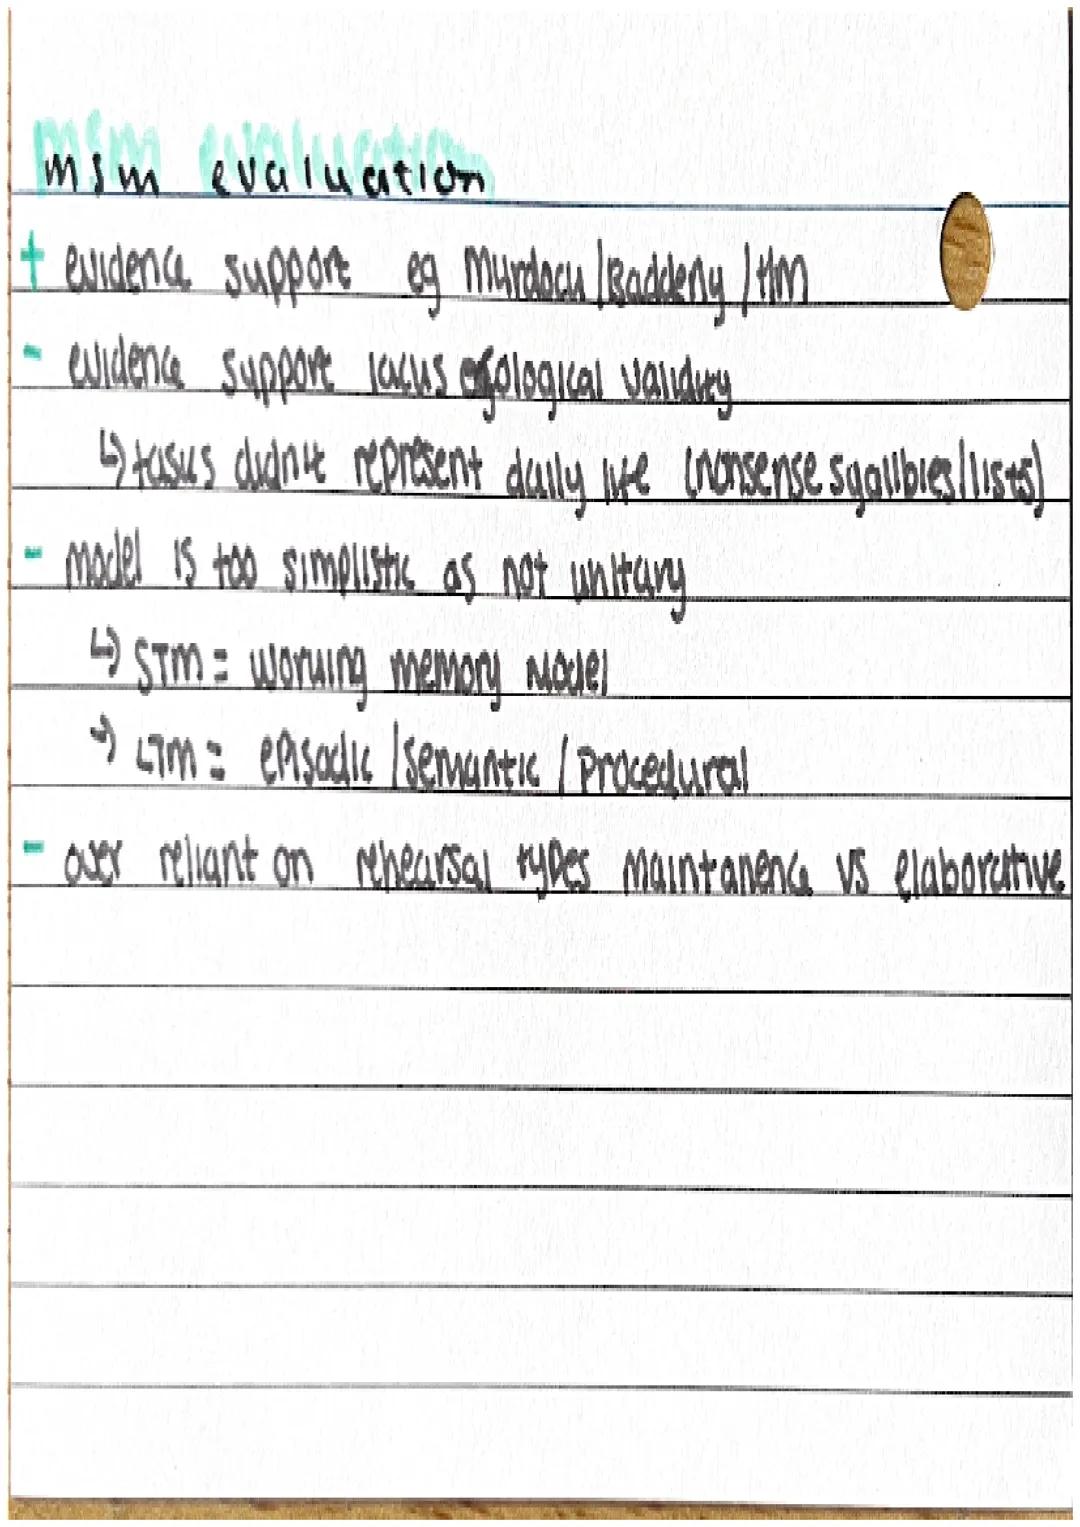 msm evaluation
+ evidence support eg Murdock/Baddeny/HM
- evidence support lacks ecological validity
↳ tasks didn't represent daily life (nonsense syallbles/lists)
- model is too simplistic as not unitary
↳ STM = working memory model
→ LTM = episodic/semantic/procedural
- over reliant on rehearsal types maintanence vs elaborative